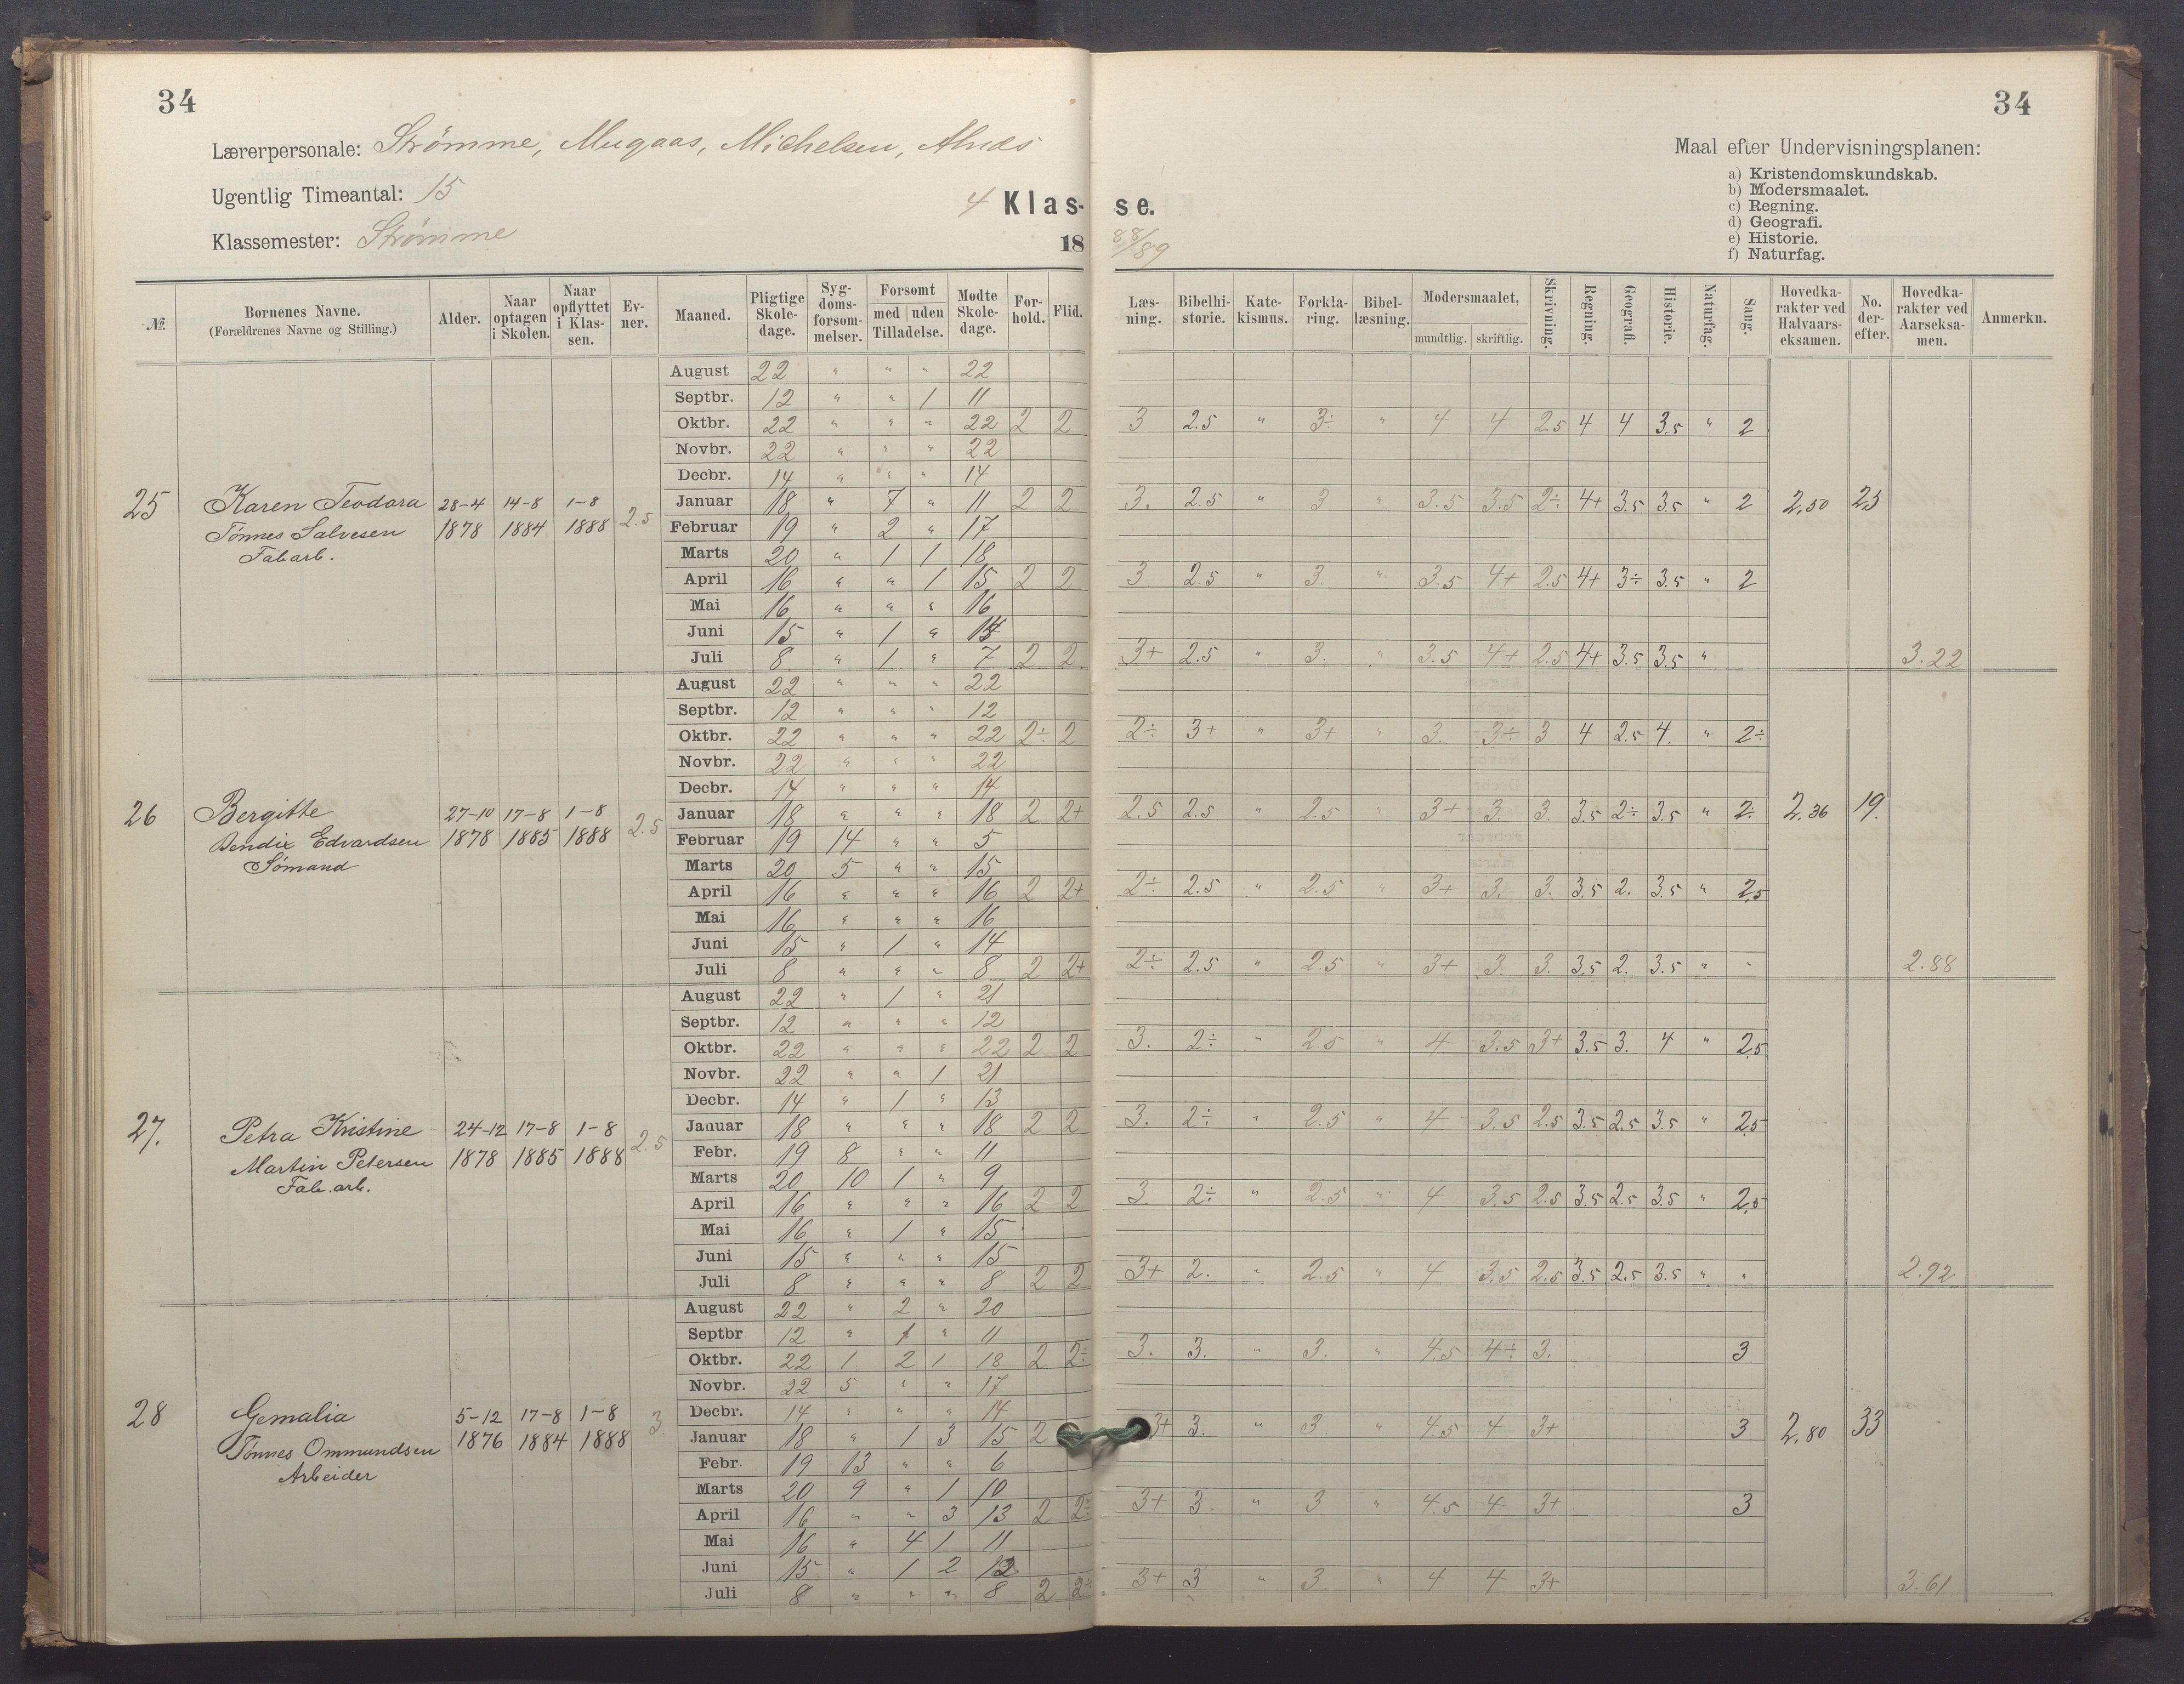 34
34
Lærerpersonale: Strömme, Mugaas, Michelsen,
Ugentlig Timeantal: 15
Klassemester: Strömme
4 Klas- se.
18 88/89
Maal efter Undervisningsplanen:
a) Kristendomskundskab.
b) Modersmaalet.
c) Regning.
d) Geografi.
e) Historie.
f) Naturfag.
№ | Bornenes Navne. (Forældrenes Navne og Stilling.) | Alder. | Naar optagen i Skolen. | Naar opflyttet i Klassen. | Evner. | Maaned. | Pligtige Skoledage. | Sygdomsforsømmelser. | Forsømt med | uden Tilladelse. | Mødte Skoledage. | Forhold. | Flid. | Læsning. | Bibelhistorie. | Katekismus. | Forklaring. | Bibellæsning. | Modersmaalet, mundtlig. | skriftlig. | Skrivning. | Regning. | Geografi. | Historie. | Naturfag. | Sang. | Hovedkarakter ved Halvaarseksamen. | No. derefter. | Hovedkarakter ved Aarseksamen. | Anmerkn.
25 Karen Teodora 28-4 14-8 1-8
Tønnes Salvesen 1878 1884 1888 2.5
Fabarb.
August 22 " " " 22
Septbr. 12 " " 1 11
Oktbr. 22 " " " 22 2 2 3 2.5 " 3÷ " 4 4 2.5 4 4 3.5 " 2
Novbr. 22 " " " 22
Decbr. 14 " " " 14
Januar 18 " 7 " 11 2 2 3. 2.5 " 3 " 3.5 3.5 2÷ 4+ 3.5 3.5 " 2 2,50 25
Februar 19 " 2 " 17
Marts 20 " 1 1 18
April 16 " " 1 15 2 2 3 2.5 " 3. " 3.5 4+ 2.5 4+ 3÷ 3.5 " 2
Mai 16 " " " 16
Juni 15 " 1 " 14
Juli 8 " 1 " 7 2 2 3+ 2.5 " 3. " 3.5 4+ 2.5 4+ 3.5 3.5 " 3.22
26 Bergitte 27-10 17-8 1-8
Bendix Edvardsen 1878 1885 1888 2.5
Sömand
August 22 " " " 22
Septbr. 12 " " " 12
Oktbr. 22 " " " 22 2÷ 2 2÷ 3+ " 3+ " 3. 3÷ 3 4 2.5 4. " 2÷
Novbr. 22 " " " 22
Decbr. 14 " " " 14
Januar 18 " " " 18 2 2+ 2.5 2.5 " 2.5 " 3+ 3. 3. 3.5 2÷ 3.5 " 2÷ 2,36 19.
Februar 19 14 " " 5
Marts 20 5 " " 15
April 16 " " " 16 2 2+ 2÷ 2.5 " 2.5 " 3+ 3. 3. 3.5 2. 3.5 " 2,5
Mai 16 " " " 16
Juni 15 " 1 " 14
Juli 8 " " " 8 2 2+ 2÷ 2.5 " 2.5 " 3+ 3. 3. 3.5 2. 3.5 " " 2.88
27. Petra Kristine 24-12 17-8 1-8
Martin Petersen 1878 1885 1888 2.5
Fab.arb.
August 22 " 1 " 21
Septbr. 12 " " " 12
Oktbr. 22 " " " 22 2 2 3. 2÷ " 2.5 " 4 3.5 3+ 3.5 3. 4 " 2,5
Novbr. 22 " " 1 21
Decbr. 14 " 1 " 13
Januar 18 " " " 18 2 2 3. 2÷ " 2.5 " 4 3.5 2.5 3.5 2.5 3.5 " 2,5
Febr. 19 8 " " 11
Marts 20 10 1 " 9
April 16 " " " 16 2 2 3. 2÷ " 2.5 " 4 3.5 2.5 3.5 2.5 3.5 " 2,5
Mai 16 " 1 " 15
Juni 15 " " " 15
Juli 8 " " " 8 2 2 3+ 2. " 2.5 " 4 3.5 2.5 3.5 2.5 3.5 " " 2.92
28 Gemalia 5-12 17-8 1-8
Tønnes Ommundsen 1876 1884 1888 3.
Arbeider
August 22 " 2 " 20
Septbr 12 " 1 " 11
Oktbr. 22 1 2 1 18 2 2÷ 3. 3. " 3. " 4.5 4÷ 3. 3
Novbr. 22 5 " " 17
Decbr. 14 " " " 14
Januar 18 " 1 3 15 2 3+ 3. " 3. " 4.5 4 3+ 3 2,80 33
Febr 19 13 " " 6
Marts 20 9 " 1 10
April 16 " " 3 13 2 2÷ 3+ 3. " 3 " 4.5 4 3+ 3
Mai 16 " 4 1 11
Juni 15 " 1 2 12
Juli 8 " " " 8 2 2÷ 3+ 3 " 3. " 4 4 3+ 3.61